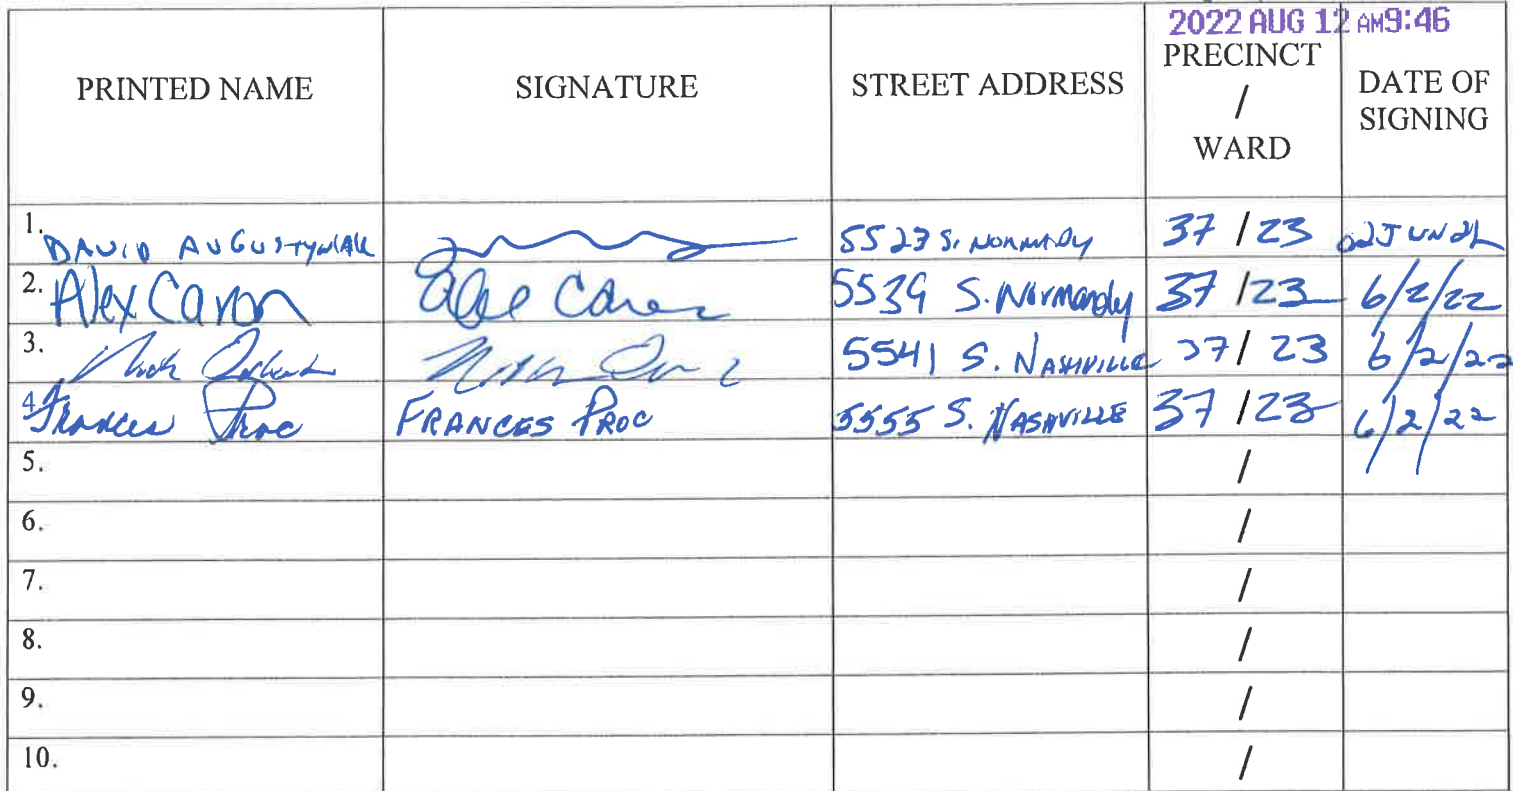 2022 AUG 12 AM9:46
PRINTED NAME SIGNATURE STREET ADDRESS PRECINCT / WARD DATE OF SIGNING
1. DAVID AUGUSTYNIAK 5523 S. NORMANDY 37 / 23 02JUN22
2. Alex Caron 5539 S. Normandy 37 / 23 6/2/22
3. 5541 S. NASHVILLE 37 / 23 6/2/22
4. Frances Proc FRANCES PROC 5555 S. NASHVILLE 37 / 23 6/2/22
5. /
6. /
7. /
8. /
9. /
10. /